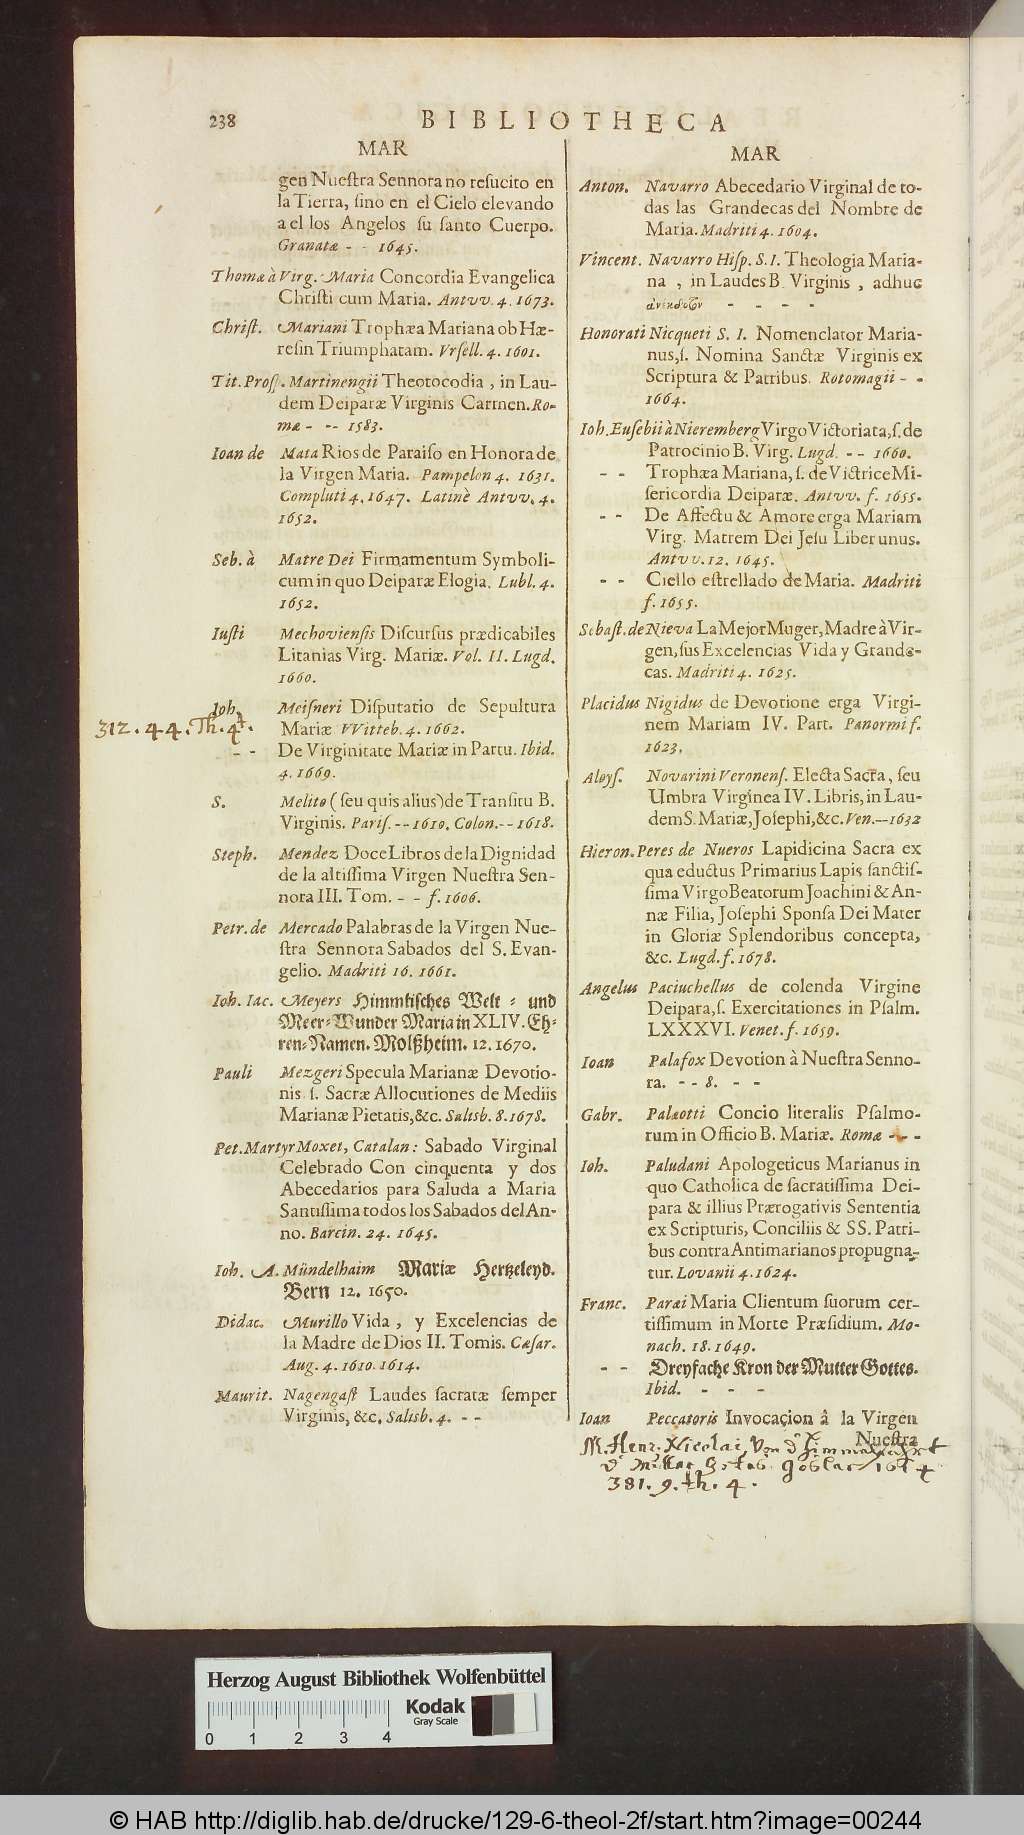 238
BIBLIOTHECA
MAR
gen Nueſtra Sennora no reſucito en
la Tierra, ſino en el Cielo elevando
a el los Angelos ſu ſanto Cuerpo.
Granatæ - - 1645.
Thomæ à Virg. Maria Concordia Evangelica
Chriſti cum Maria. Antvv. 4. 1673.
Chriſt. Mariani Trophæa Mariana ob Hæ-
reſin Triumphatam. Vrſell. 4. 1601.
Tit. Proſp. Martinengii Theotocodia, in Lau-
dem Deiparæ Virginis Carmen. Ro-
mæ - -- 1583.
Ioan de Mata Rios de Paraiſo en Honora de
la Virgen Maria. Pampelon 4. 1631.
Compluti 4. 1647. Latinè Antvv. 4.
1652.
Seb. à Matre Dei Firmamentum Symboli-
cum in quo Deiparæ Elogia. Lubl. 4.
1652.
Iuſti Mechovienſis Diſcurſus prædicabiles
Litanias Virg. Mariæ. Vol. II. Lugd.
1660.
Ioh. Meiſneri Diſputatio de Sepultura
312. 44. Th. 4t.
Mariæ VVitteb. 4. 1662.
- - De Virginitate Mariæ in Partu. Ibid.
4. 1669.
S. Melito (ſeu quis alius) de Tranſitu B.
Virginis. Pariſ. -- 1610. Colon. -- 1618.
Steph. Mendez Doce Libros de la Dignidad
de la altiſſima Virgen Nueſtra Sen-
nora III. Tom. - - f. 1606.
Petr. de Mercado Palabras de la Virgen Nue-
ſtra Sennora Sabados del S. Evan-
gelio. Madriti 16. 1661.
Ioh. Iac. Meyers Himmliſches Welt- und
Meer-Wunder Maria in XLIV. Eh-
ren-Namen. Molßheim. 12. 1670.
Pauli Mezgeri Specula Marianæ Devotio-
nis ſ. Sacræ Allocutiones de Mediis
Marianæ Pietatis, &c. Saltsb. 8. 1678.
Pet. Martyr Moxet, Catalan: Sabado Virginal
Celebrado Con cinquenta y dos
Abecedarios para Saluda a Maria
Santiſſima todos los Sabados del An-
no. Barcin. 24. 1645.
Ioh. A. Mündelhaim Mariæ Hertzeleyd.
Bern 12. 1650.
Didac. Murillo Vida, y Excelencias de
la Madre de Dios II. Tomis. Cæſar.
Aug. 4. 1610. 1614.
Maurit. Nagengaſt Laudes ſacratæ ſemper
Virginis, &c. Saltsb. 4. - -
MAR
Anton. Navarro Abecedario Virginal de to-
das las Grandecas del Nombre de
Maria. Madriti 4. 1604.
Vincent. Navarro Hiſp. S. I. Theologia Maria-
na, in Laudes B. Virginis, adhuc
- - - -
Honorati Nicqueti S. I. Nomenclator Maria-
nus, ſ. Nomina Sanctæ Virginis ex
Scriptura & Patribus. Rotomagii - -
1664.
Ioh. Euſebii à Nieremberg Virgo Victoriata, ſ. de
Patrocinio B. Virg. Lugd. -- 1660.
- - Trophæa Mariana, ſ. de Victrice Mi-
ſericordia Deiparæ. Antvv. f. 1655.
- - De Affectu & Amore erga Mariam
Virg. Matrem Dei Jeſu Liber unus.
Antvv. 12. 1645.
- - Ciello eſtrellado de Maria. Madriti
f. 1655.
Sebaſt. de Nieva La Mejor Muger, Madre à Vir-
gen, ſus Excelencias Vida y Grande-
cas. Madriti 4. 1625.
Placidus Nigidus de Devotione erga Virgi-
nem Mariam IV. Part. Panormi f.
1623.
Aloyſ. Novarini Veronenſ. Electa Sacra, ſeu
Umbra Virginea IV. Libris, in Lau-
dem S. Mariæ, Joſephi, &c. Ven. -- 1632
Hieron. Peres de Nueros Lapidicina Sacra ex
qua eductus Primarius Lapis ſanctiſ-
ſima Virgo Beatorum Joachini & An-
næ Filia, Joſephi Sponſa Dei Mater
in Gloriæ Splendoribus concepta,
&c. Lugd. f. 1678.
Angelus Paciuchellus de colenda Virgine
Deipara, ſ. Exercitationes in Pſalm.
LXXXVI. Venet. f. 1659.
Ioan Palafox Devotion à Nueſtra Senno-
ra. - - 8. - -
Gabr. Palæotti Concio literalis Pſalmo-
rum in Officio B. Mariæ. Romæ - - -
Ioh. Paludani Apologeticus Marianus in
quo Catholica de ſacratiſſima Dei-
para & illius Prærogativis Sententia
ex Scripturis, Conciliis & SS. Patri-
bus contra Antimarianos propugna-
tur. Lovanii 4. 1624.
Franc. Paræi Maria Clientum ſuorum cer-
tiſſimum in Morte Præſidium. Mo-
nach. 18. 1649.
- - Dreyfache Kron der Mutter Gottes.
Ibid. - - -
Ioan Peccatoris Invocaçion â la Virgen
Nueſtra
M. Henr. Nicolai Von d Himmelfahrt
381. 9. th. 4.
Herzog August Bibliothek Wolfenbüttel
Kodak
Gray Scale
0 1 2 3 4
© HAB http://diglib.hab.de/drucke/129-6-theol-2f/start.htm?image=00244